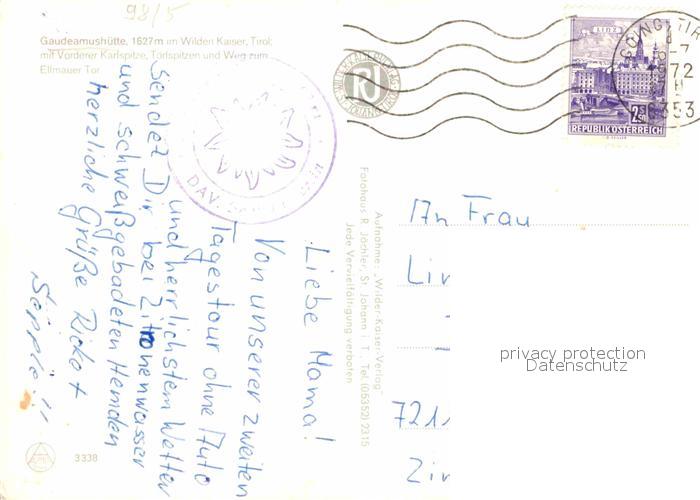 98/5
Gaudeamushütte, 1627m im Wilden Kaiser, Tirol;
mit Vorderer Karlspitze, Törlspitzen und Weg zum
Ellmauer Tor
Liebe Mama!
Von unserer zweiten
Tagestour ohne Auto
und herrlichstem Wetter
sendet Dir bei Zitronenwasser
und schweißgebadeten Hemden
herzliche Grüße Ricke +
Sepple!!
3338
Aufnahme: „Wilder-Kaiser-Verlag"
Fotohaus R. Jöchler, St. Johann i. T., Tel. (05352) 2315
Jede Vervielfältigung verboten
LINZ
2.50
REPUBLIK ÖSTERREICH
GOING TIR
72
6353
DAV
An Frau
Lin
721
Zir
privacy protection
Datenschutz